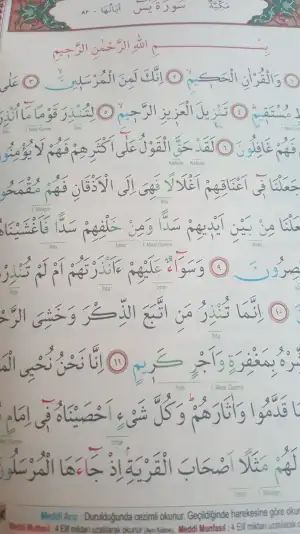 مَكِّيَّةٌ سُورَةُ يٰسٓ اٰيَاتُهَا ٨٣
بِسْمِ اللّٰهِ الرَّحْمٰنِ الرَّحِيمِ
وَالْقُرْاٰنِ الْحَكِيمِ ٢ اِنَّكَ لَمِنَ الْمُرْسَلِينَ ٣ عَلٰى
مُسْتَقِيمٍ ٤ تَنْزِيلَ الْعَزِيزِ الرَّحِيمِ ٥ لِتُنْذِرَ قَوْمًا مَٓا اُنْذِرَ
فَهُمْ غَافِلُونَ ٦ لَقَدْ حَقَّ الْقَوْلُ عَلٰٓى اَكْثَرِهِمْ فَهُمْ لَا يُؤْمِنُونَ
جَعَلْنَا فٓى اَعْنَاقِهِمْ اَغْلَالًا فَهِىَ اِلَى الْاَذْقَانِ فَهُمْ مُقْمَحُونَ
مِنْ بَيْنِ اَيْدِيهِمْ سَدًّا وَمِنْ خَلْفِهِمْ سَدًّا فَاَغْشَيْنَاهُمْ
٩ وَسَوَٓاءٌ عَلَيْهِمْ ءَاَنْذَرْتَهُمْ اَمْ لَمْ تُنْذِرْهُمْ
١٠ اِنَّمَا تُنْذِرُ مَنِ اتَّبَعَ الذِّكْرَ وَخَشِىَ
بِمَغْفِرَةٍ وَاَجْرٍ كَرِيمٍ ١١ اِنَّا نَحْنُ نُحْيِى
مَا قَدَّمُوا وَاٰثَارَهُمْ وَكُلَّ شَىْءٍ اَحْصَيْنَاهُ فٓى اِمَامٍ
لَهُمْ مَثَلًا اَصْحَابَ الْقَرْيَةِ اِذْ جَٓاءَهَا الْمُرْسَلُونَ
Meddi Arız : Durulduğunda cezimli okunur. Geçildiğinde harekesine göre okunur
Meddi Muttasıl : 4 Elif miktarı uzatılarak okunur Meddi Munfasıl : 4 Elif miktarı